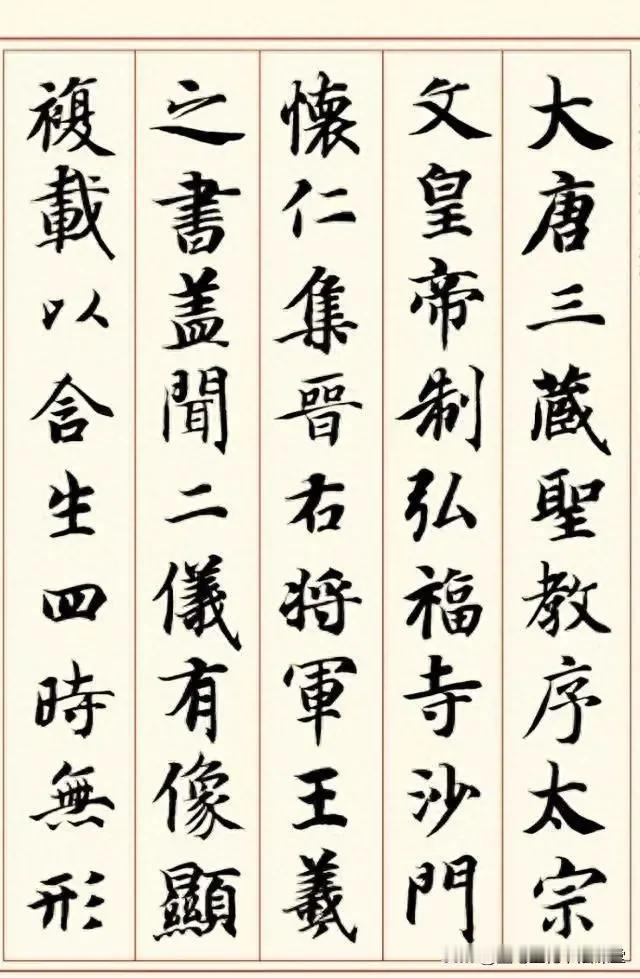 大唐三蔵聖教序太宗
文皇帝制弘福寺沙門
懐仁集晉右将軍王羲
之書盖聞二儀有像顯
複載以含生四時無形